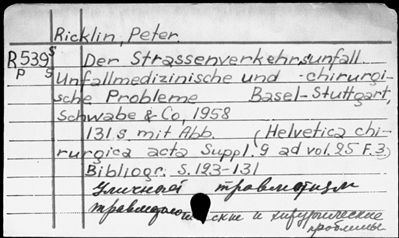 Ricklin, Peter
R539 s Der Strassenverkehrsunfall.
p s Unfallmedizinische und -chirurgi-
sche Probleme Basel-Stuttgart,
Schwabe & Co, 1958
131 s. mit Abb. (Helvetica chi-
rurgica acta Suppl. 9 ad vol. 25 F. 3)
Bibliogr. S. 123-131
Уличный травматизм
травматологические и хирургические
проблемы